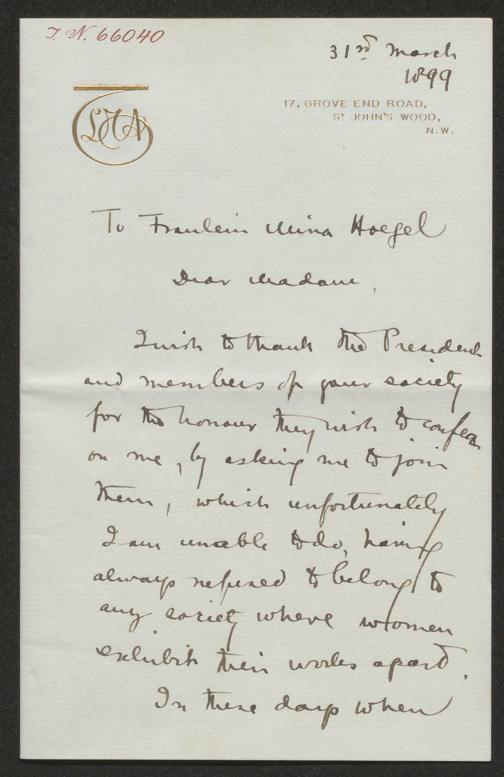 I. N. 66040
31rd March
1899
LAT
17, GROVE END ROAD,
ST JOHN'S WOOD,
N.W.
To Fraulein Mina Hoegel
Dear Madam,
I wish to thank the President
and members of your society
for the honour they wish to confer
on me, by asking me to join
them, which unfortunately
I am unable to do, having
always refused to belong to
any society where women
exhibit their works apart.
In these days when